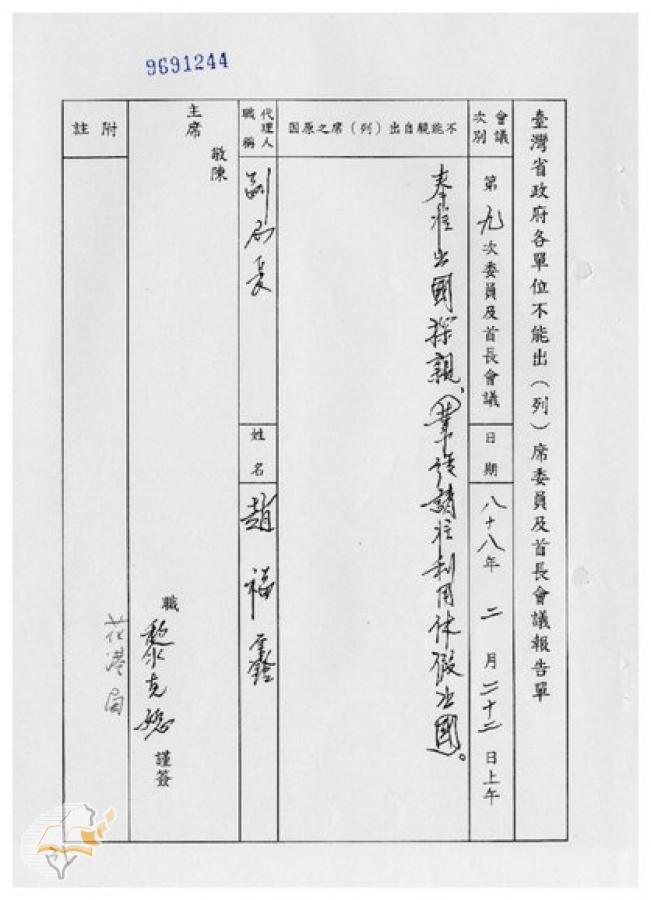 9691244
臺灣省政府各單位不能出(列)席委員及首長會議報告單
會議次別
第九次委員及首長會議
日期
八十八年二月二十二日上午
不能親自出(列)席之原因
奉准出國探親、(業後請准利用休假出國)。
代理人職稱
副局長
姓名
趙福鑫
主席
敬陳
職
黎克
謹簽
附註
花港局